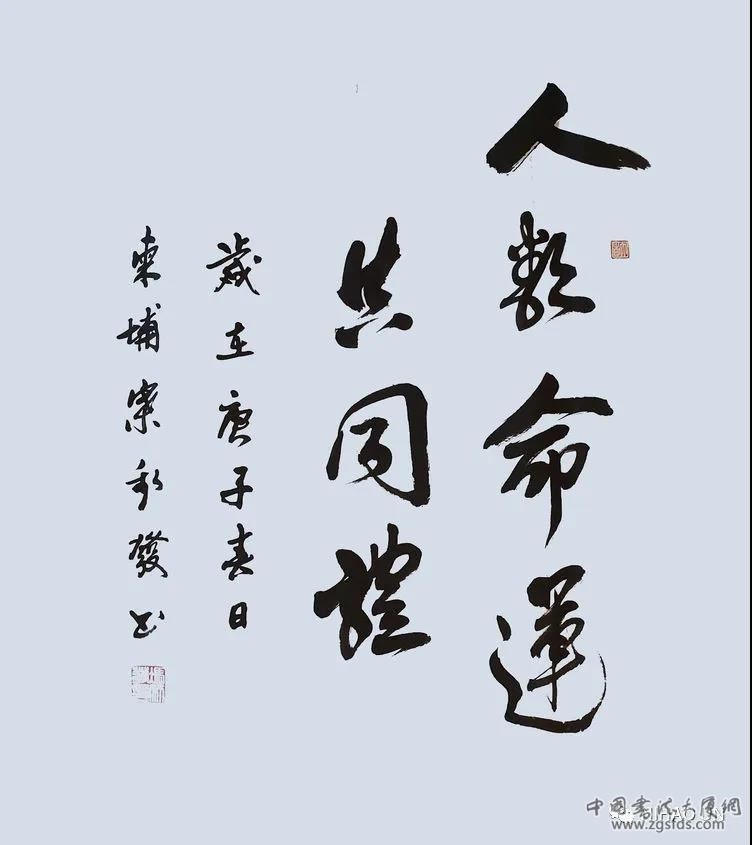 人類命運
共同體
歲在庚子春日
東埔寨
發书
中国书法大厦網
www.zgsfds.com